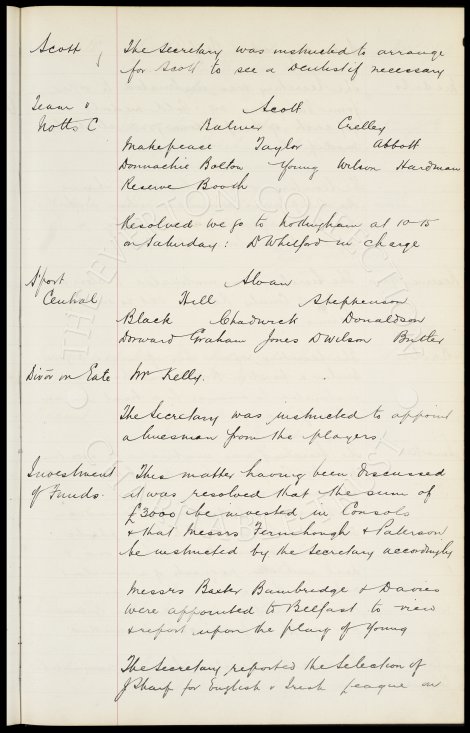 Scott The Secretary was instructed to arrange
for Scott to see a Dentist if necessary
Team v Scott
Notts C Balmer Crelley
Makepeace Taylor Abbott
Donnachie Bolton Young Wilson Hardman
Reserve Booth
Resolved we go to Nottingham at 10-15
on Saturday: D Whitford in charge
S'port Sloan
Central Hill Stephenson
Black Chadwick Donaldson
Dorward Graham Jones D Wilson Butler
Dir'r on Gate Mr Kelly.
The Secretary was instructed to appoint
a linesman from the players
Investment This matter having been discussed
of Funds. it was resolved that the sum of
£3000 be invested in Consols
& that Messrs Fernihough & Paterson
be instructed by the Secretary accordingly
Messrs Baxter Bainbridge & Davies
were appointed to Belfast to view
& report upon the play of Young
The Secretary reported the Selection of
J Sharp for English v Irish League on
THE EVERTON COLLECTION